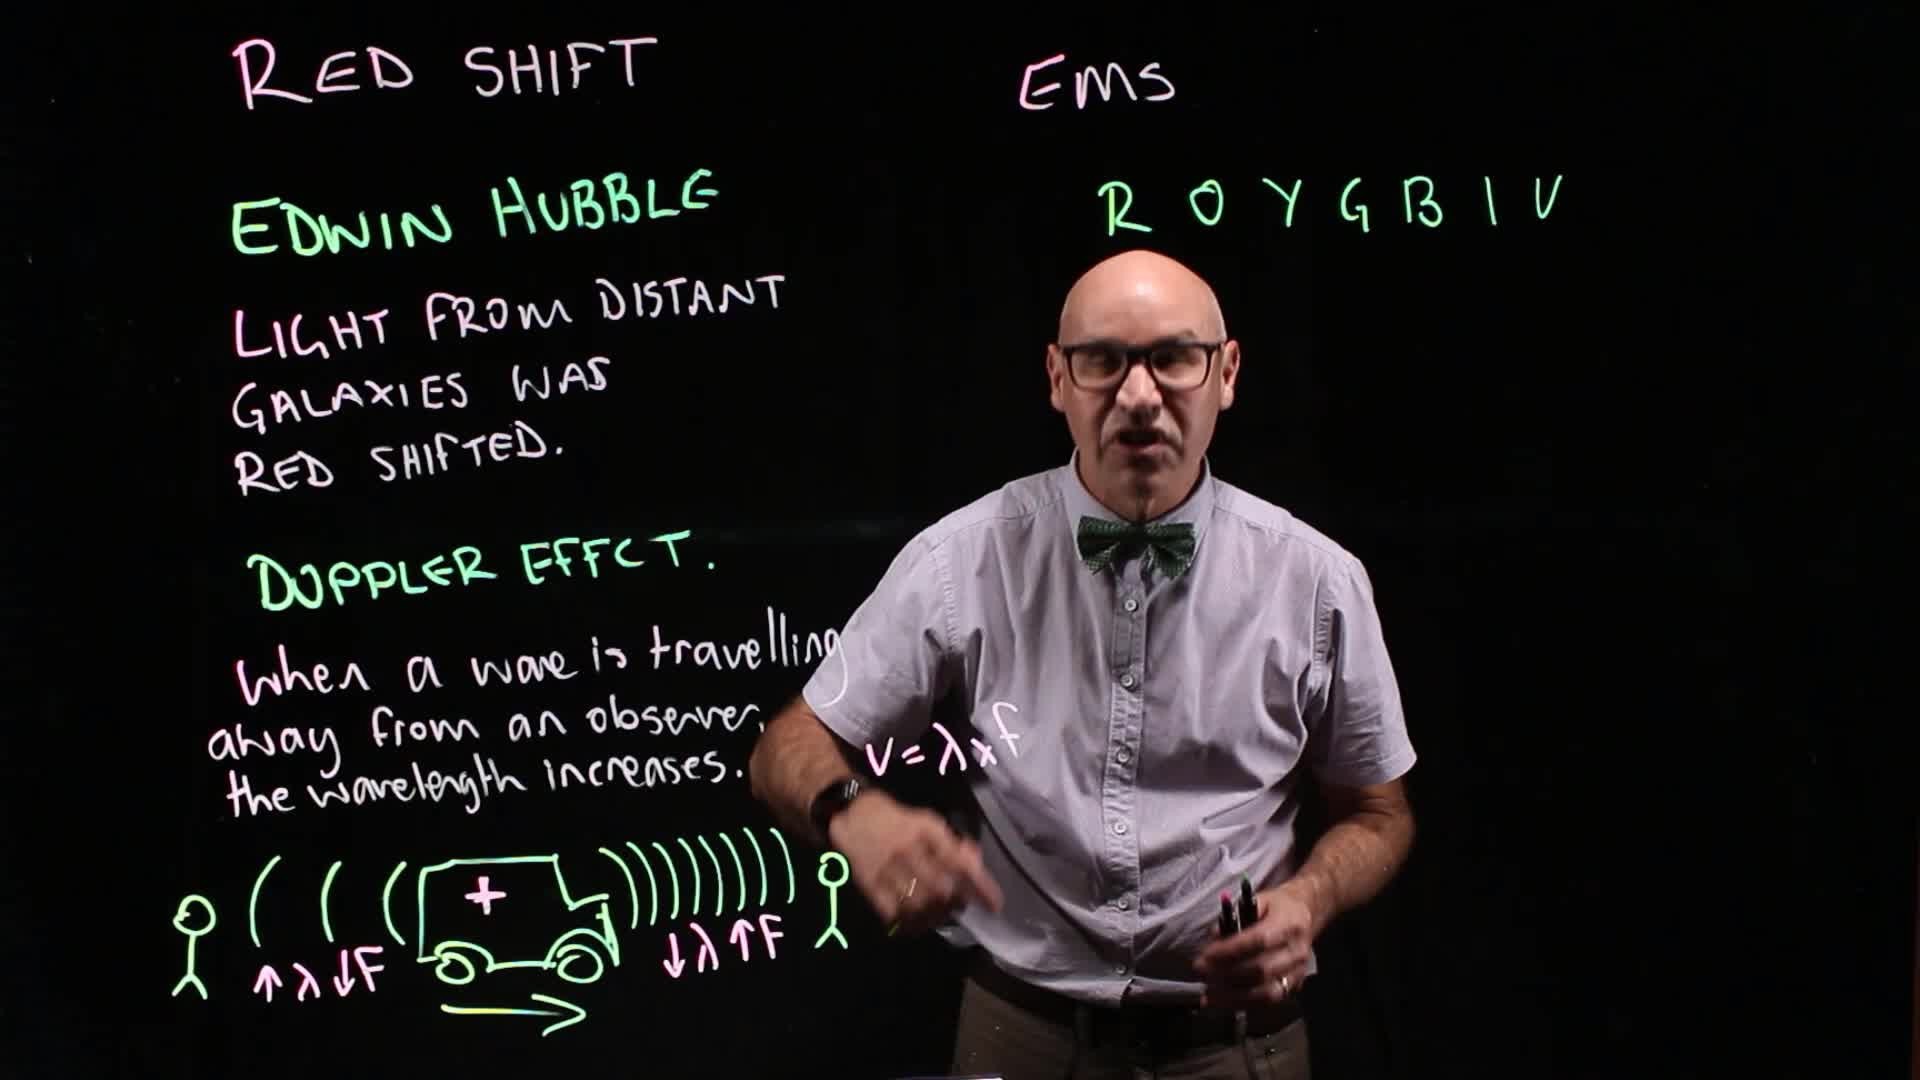 RED SHIFT
EDWIN HUBBLE
LIGHT FROM DISTANT
GALAXIES WAS
RED SHIFTED.
DOPPLER EFFCT.
When a wave is travelling
away from an observer,
the wavelength increases.
↑ λ ↓F
+
↓λ ↑F
v = λ x f
EMS
R O Y G B I V